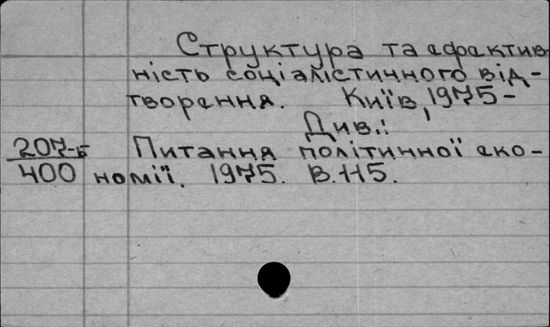 Структура та ефектив
ність соціалістичного від-
творення. Київ, 1975-
Див.:
207-Б Питання політичної еко-
400 номії. 1975. В.115.